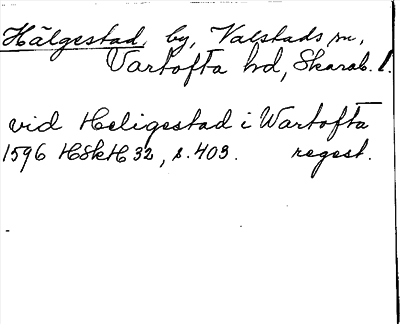 Hälgestad, by, Valstads sn,
Vartofta hd, Skarab. l.
vid Heligestad i Wartofta
1596 HSkH 32, s. 403. regest.